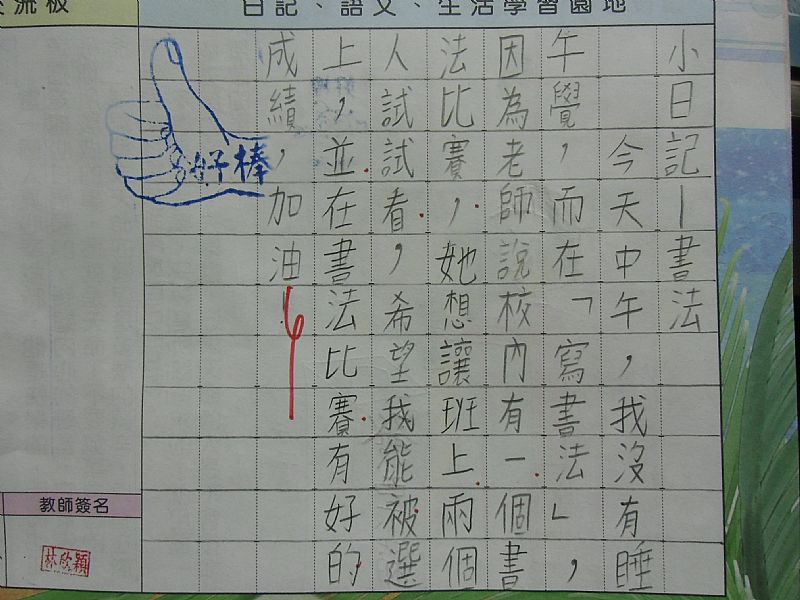 流板
日記、語文、生活學習園地
小日記—書法
今天中午，我沒有睡
午覺，而在「寫書法」，
因為老師說校內有一個書
法比賽，她想讓班上兩個
人試試看，希望我能被選
上，並在書法比賽有好的
成績，加油！
好棒
教師簽名
林欣穎